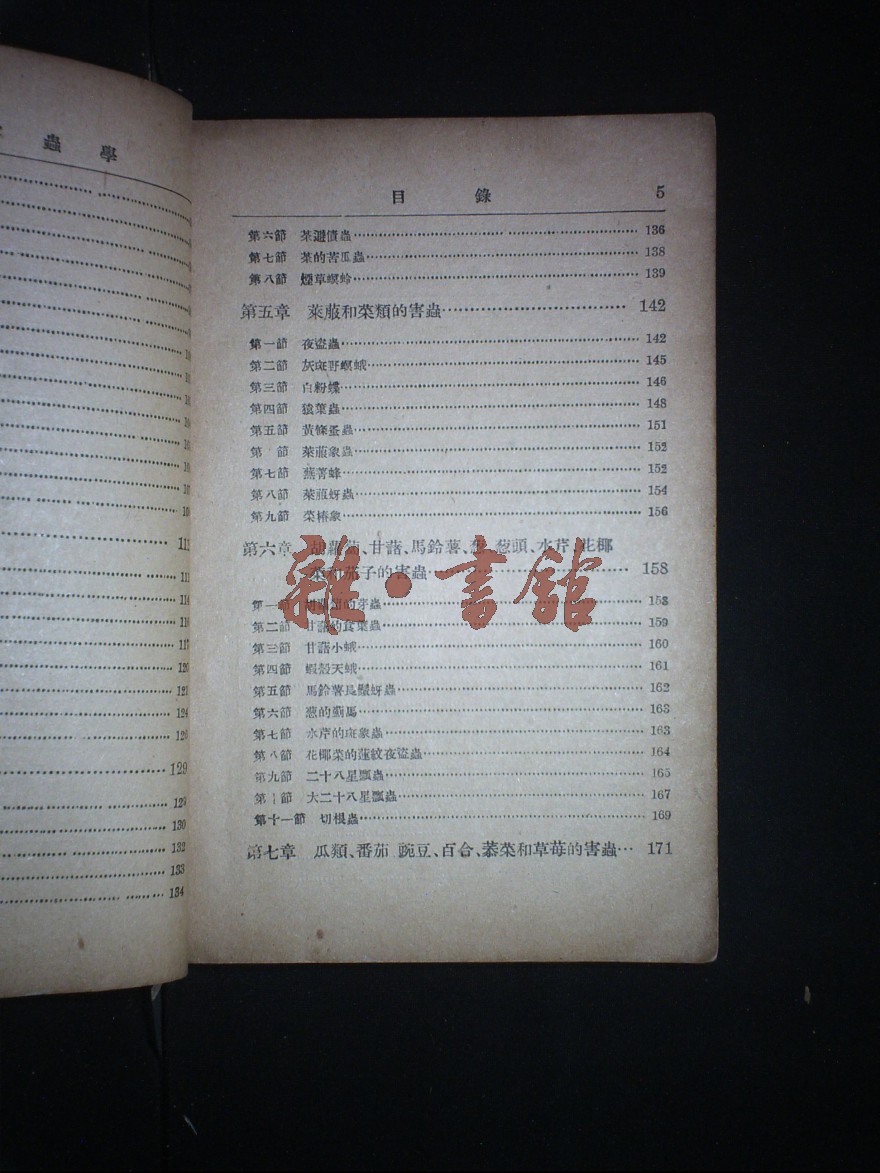 蟲 學
111
111
114
116
117
120
121
124
126
129
129
130
132
133
134
目 錄 5
第六節 茶避債蟲 136
第七節 茶的苦瓜蟲 138
第八節 煙草螟蛉 139
第五章 萊菔和菜類的害蟲 142
第一節 夜盜蟲 142
第二節 灰斑野螟蛾 145
第三節 白粉蝶 146
第四節 猿葉蟲 148
第五節 黃條蚤蟲 151
第 節 萊菔象蟲 152
第七節 蕪菁蜂 152
第八節 萊菔蚜蟲 154
第九節 菜椿象 156
第六章 胡蘿蔔、甘藷、馬鈴薯、葱、葱頭、水芹、花椰
菜和茄子的害蟲 158
第一節 胡蘿蔔的芽蟲 158
第二節 甘藷的食葉蟲 159
第三節 甘藷小蛾 160
第四節 蝦殼天蛾 161
第五節 馬鈴薯長鬚蚜蟲 162
第六節 葱的薊馬 163
第七節 水芹的斑象蟲 163
第八節 花椰菜的蓮紋夜盜蟲 164
第九節 二十八星瓢蟲 165
第十節 大二十八星瓢蟲 167
第十一節 切根蟲 169
第七章 瓜類、番茄 豌豆、百合、菾菜和草莓的害蟲 171
雜·書館